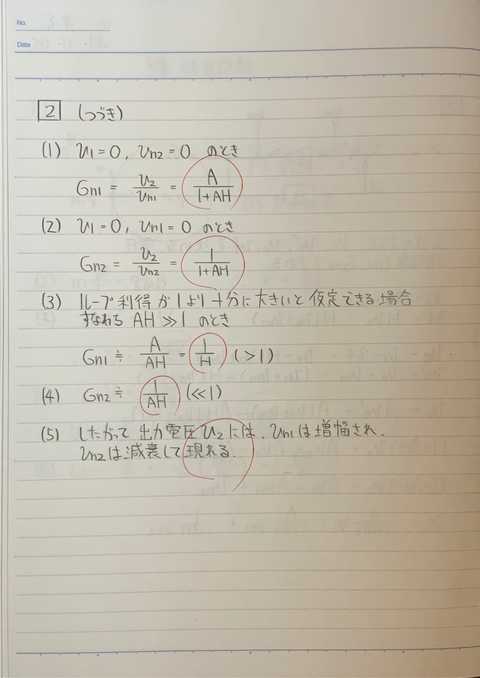 No.
Date
2 (つづき)
(1) v1=0, vn2=0 のとき
Gn1 = v2/vn1 = A/(1+AH)
(2) v1=0, vn1=0 のとき
Gn2 = v2/vn2 = 1/(1+AH)
(3) ループ利得が1より十分に大きいと仮定できる場合
すなわち AH≫1 のとき
Gn1 ≒ A/AH = 1/H (>1)
(4) Gn2 ≒ 1/AH (≪1)
(5) したがって 出力電圧 v2には、vn1は増幅され、
vn2は減衰して現れる.